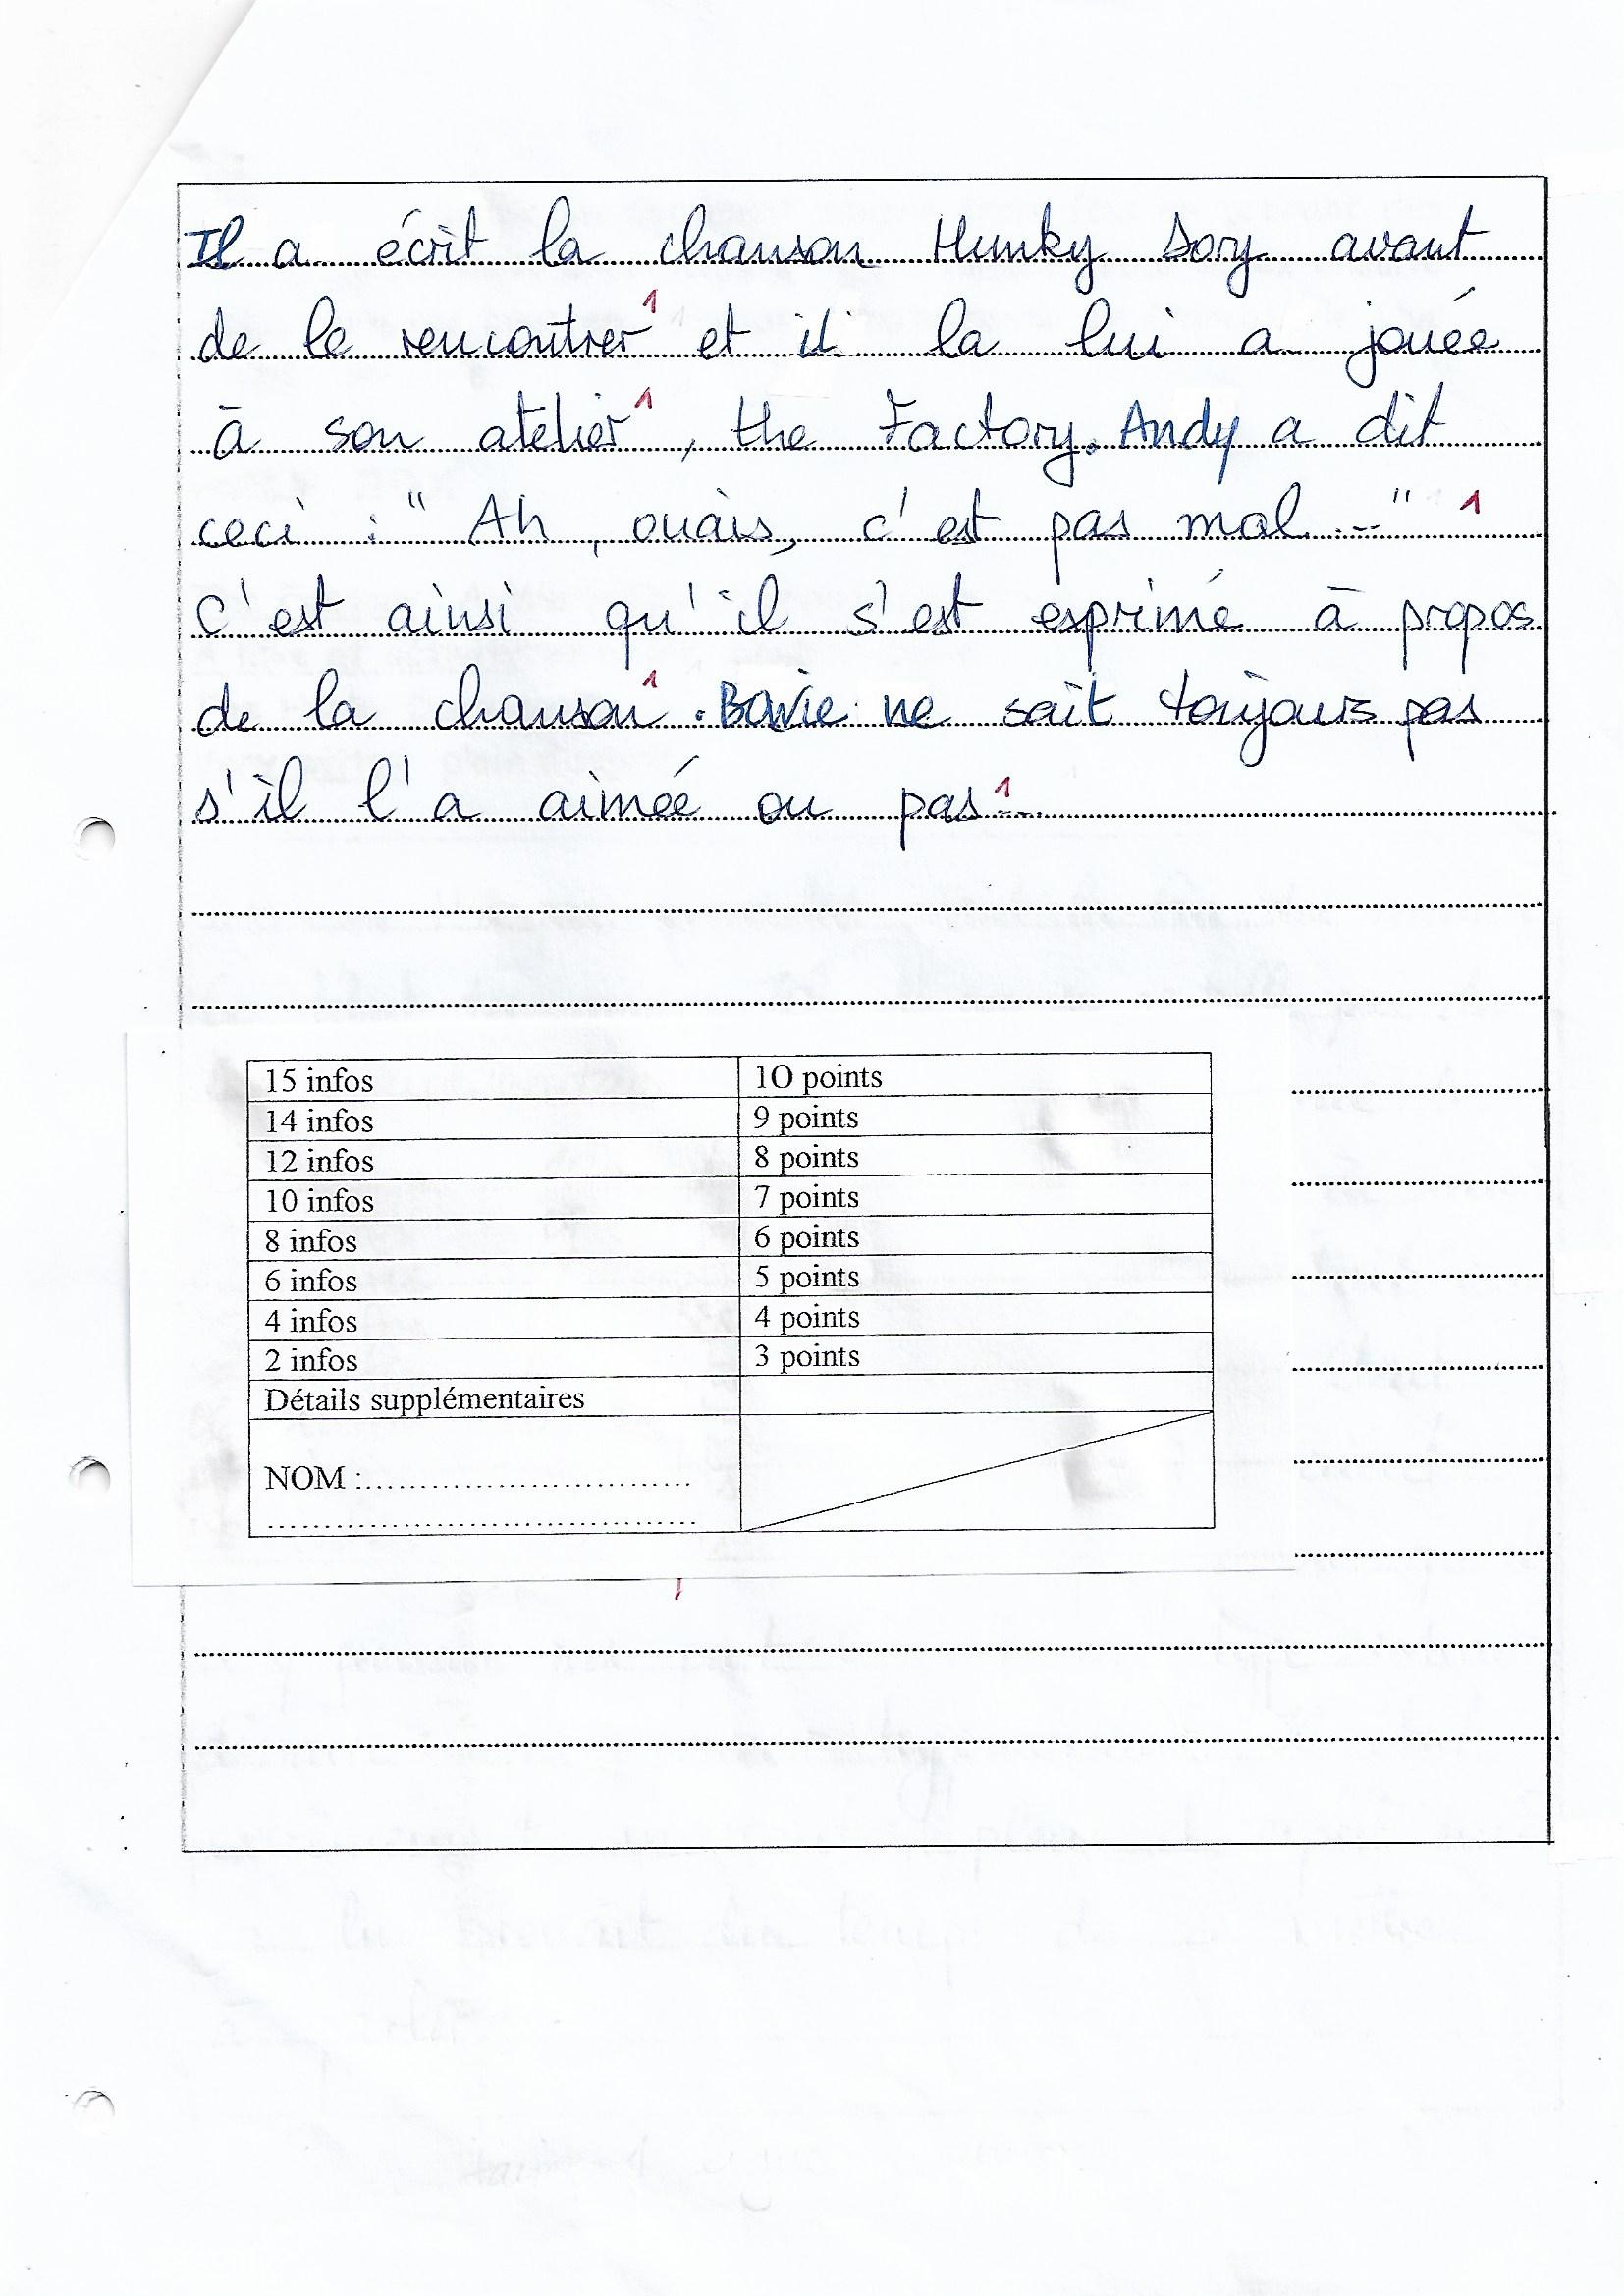 Il a écrit la chanson Hunky Dory avant
de le rencontrer 1 et il la lui a jouée
à son atelier 1, the Factory. Andy a dit
ceci : " Ah, ouais, c'est pas mal..." 1
C'est ainsi qu'il s'est esprimé à propos
de la chanson 1. Bowie ne sait toujours pas
s'il l'a aimée ou pas 1...
15 infos 10 points
14 infos 9 points
12 infos 8 points
10 infos 7 points
8 infos 6 points
6 infos 5 points
4 infos 4 points
2 infos 3 points
Détails supplémentaires
NOM :..............................
.......................................